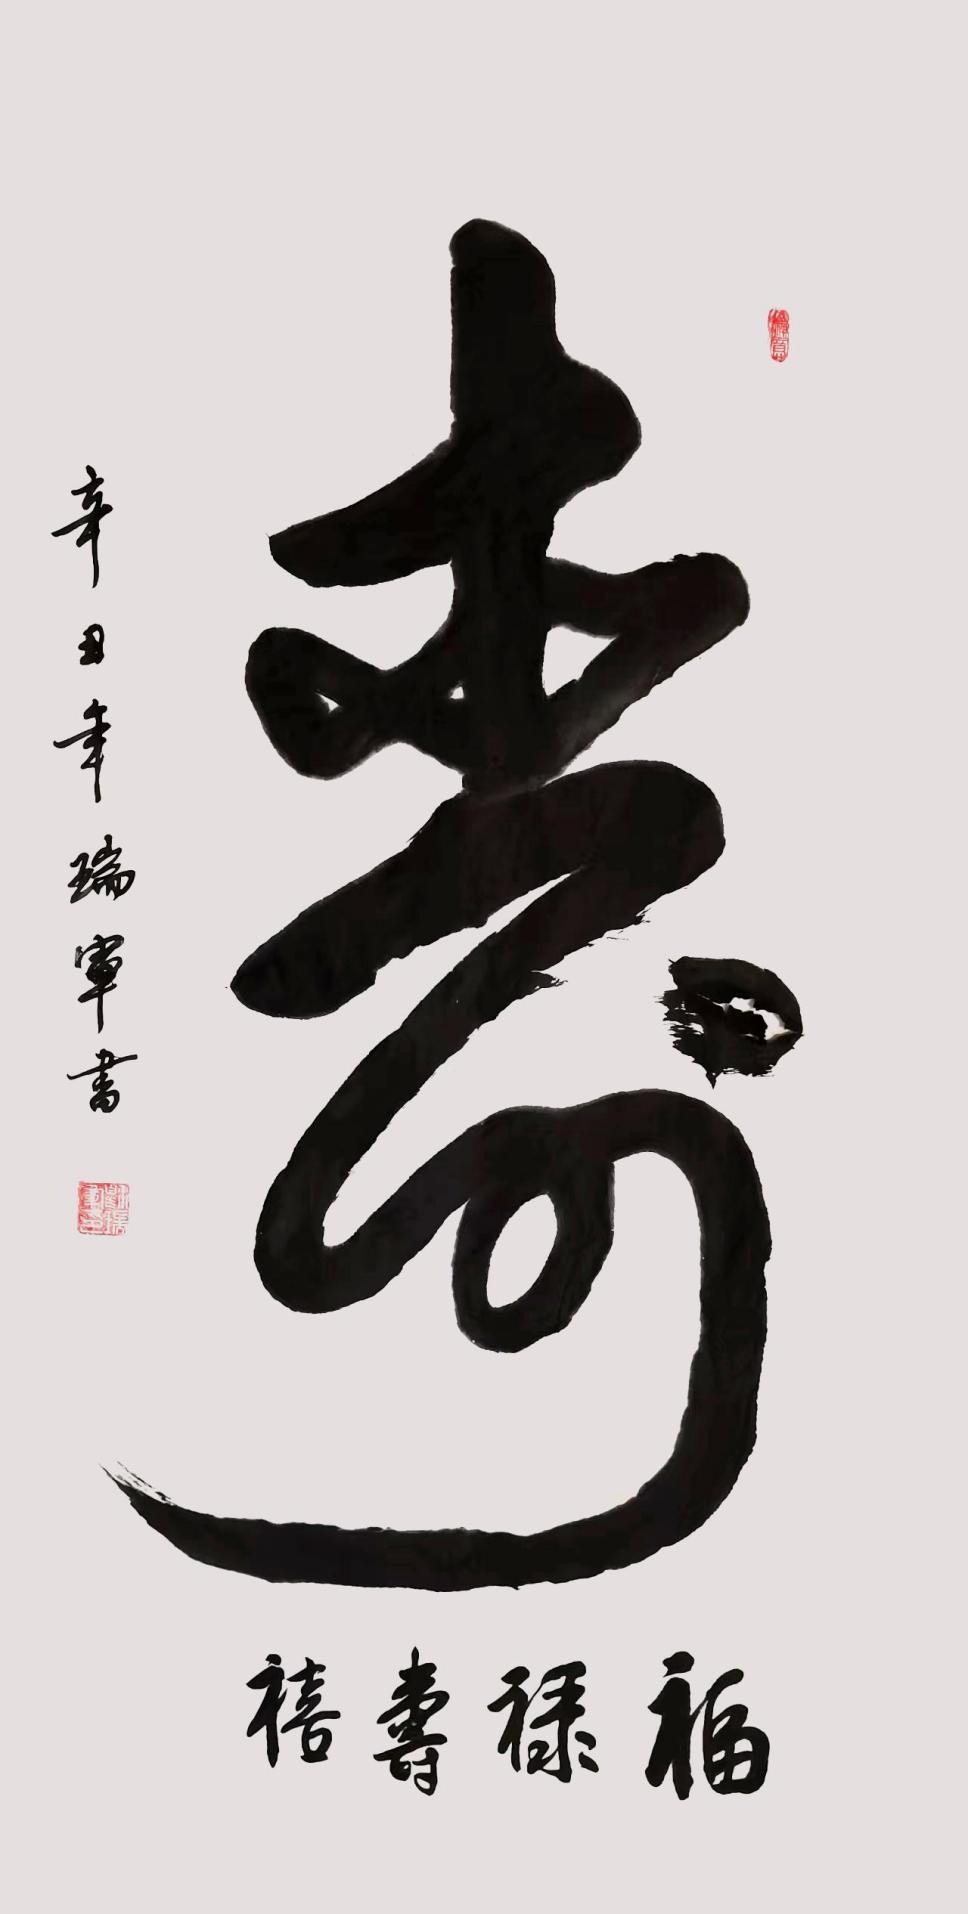 壽
福祿壽禧
辛丑年瑞軍書